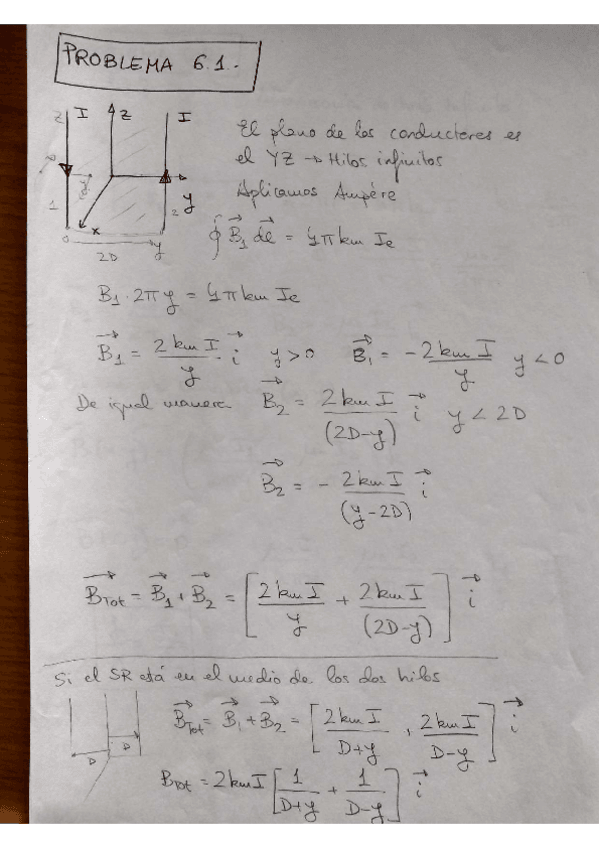 PROBLEMA 6.1.-
Z I Z I
El plano de los conductores es
el YZ → Hilos infinitos
Aplicamos Ampére
y
1 x 2 y
0 2D y
∮ B⃗₁ dl⃗ = 4π km Ie
B₁ · 2π y = 4π km Ie
B⃗₁ = 2 km I / y i⃗ y > 0 B⃗₁ = - 2 km I / y y < 0
De igual manera B⃗₂ = 2 km I / (2D-y) i⃗ y < 2D
B⃗₂ = - 2 km I / (y-2D) i⃗
B⃗Tot = B⃗₁ + B⃗₂ = [ 2 km I / y + 2 km I / (2D-y) ] i⃗
Si el SR está en el medio de los dos hilos
D D
B⃗Tot = B⃗₁ + B⃗₂ = [ 2 km I / D+y , 2 km I / D-y ] i⃗
BTot = 2 km I [ 1 / D+y + 1 / D-y ] i⃗